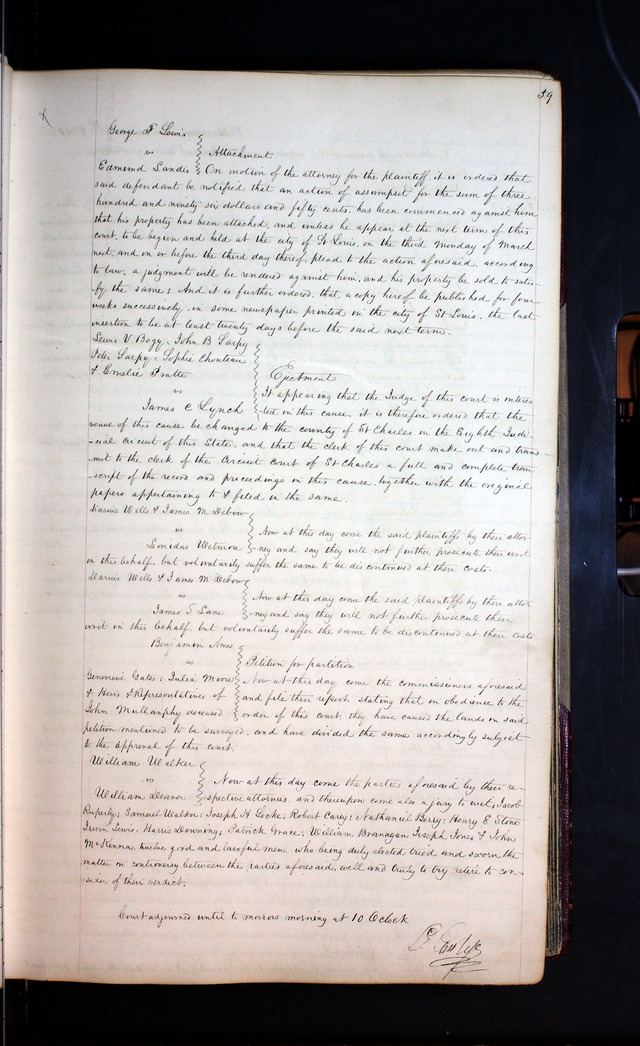 59
George F Lewis
vs
Attachment
Edmund Landis On motion of the attorney for the plaintiff, it is ordered that
said defendant be notified that an action of assumpsit for the sum of three
hundred and ninety six dollars and fifty cents, has been commenced against him
that his property has been attached, and unless he appear at the next term of this
court, to be begun and held at the city of St Louis, on the third Monday of March
next, and on or before the third day thereof, plead to the action aforesaid, according
to law, a judgment will be rendered against him, and his property be sold to satis-
fy the same; And it is further ordered, that a copy hereof be published for four
weeks successively, in some newspaper printed in the city of St Louis, the last
insertion to be at least twenty days before the said next term.
Lewis V Bogy, John B Sarpy
Peter Sarpy, Sophie Chouteau
& Emelie Pratte
Ejectment
vs
It appearing that the Judge of this court is interes-
James C Lynch -ted in this cause, it is therefore ordered that the
venue of this cause be changed to the county of St Charles in the Eighth Judi-
-cial circuit of this State, and that the clerk of this court make out and trans-
mit to the clerk of the Circuit court of St Charles a full and complete tran-
script of the record and proceedings in this cause, together with the original
papers appertaining to & filed in the same.
Darius Wells & James M Debow
vs
Now at this day come the said plaintiffs by their attor-
Leonidas Wetmore -ney and say they will not further prosecute their writ
in this behalf, but voluntarily suffer the same to be discontinued at their costs.
Darius Wells & James M Debow
vs
Now at this day come the said plaintiffs by their attor
James S Lane -ney and say they will not further prosecute their
writ in this behalf, but voluntarily suffer the same to be discontinued at their costs.
Benjamin Ames
vs
Petition for partition
Genevieve Gates; Julia Moore Now at this day come the commissioners aforesaid
& Heirs & Representatives of and file their report, stating that in obedience to the
John Mullanphy deceased order of this court, they have caused the lands in said
petition mentioned to be surveyed, and have divided the same accordingly subject
to the approval of this court.
William Walker
vs
Now at this day come the parties aforesaid by their re-
William Deaner -spective attornies, and thereupon come also a jury to wit; Jacob
Ruperly; Samuel Walton; Joseph H Locke; Robert Cary; Nathaniel Berry; Henry E Stone
Irwin Lewis; Harris Downing; Patrick Grace; William Branagan Joseph Jones & John
McKenna, twelve good and lawful men, who being duly elected tried and sworn the
matter in controversy between the parties aforesaid, well and truly to try, retire to con-
sider of their verdict.
Court adjourned until to morrow morning at 10 Oclock